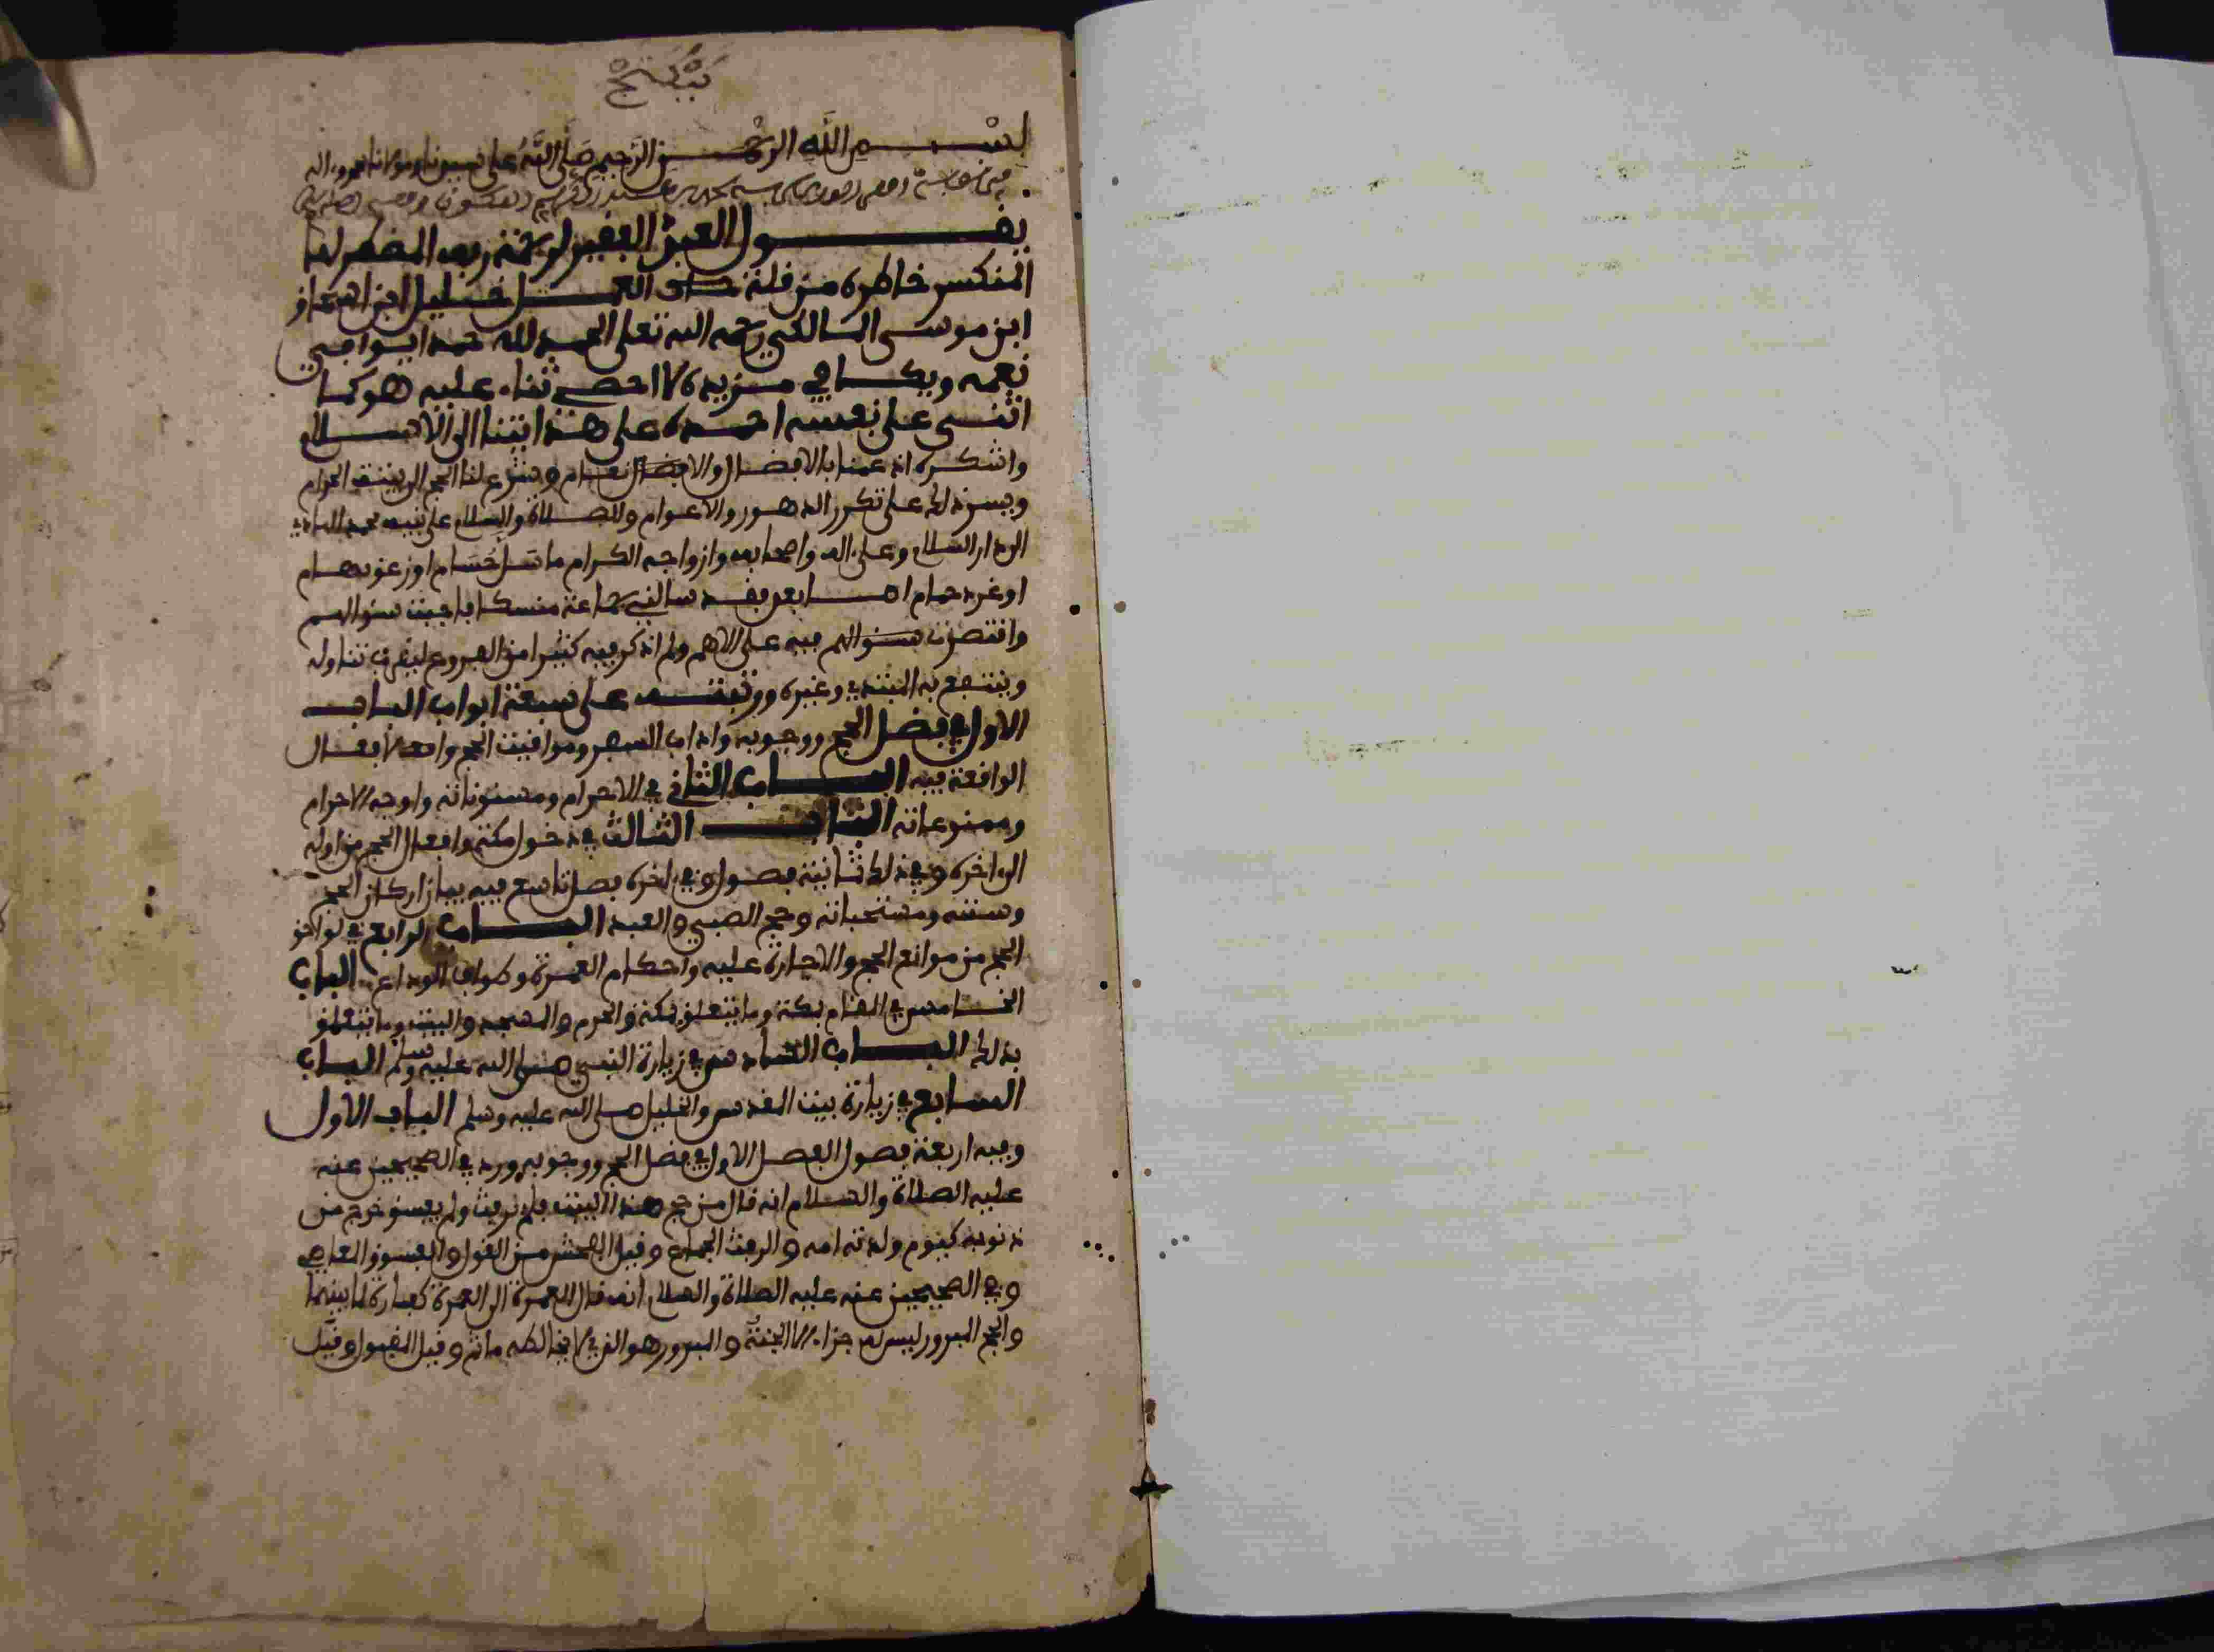 بسم الله الرحمن الرحيم صلى الله على سيدنا ومولانا محمد واله
يقول العبد الفقير لرحمة ربه المضطر لها
المنكسر خاطره من قلة العمل خليل ابن اسحاق
ابن موسى المالكي رحمه الله تعلى الحمد لله حمدا يوافي
نعمه ويكافي مزيده لا احصي ثناء عليه هو كما
اثنى على نفسه احمده على هدايتنا الى الاسلام
واشكره اذ عمنا بالافضال والانعام وشرع لنا الحج الى بيته الحرام
ويسر ذلك على تكرر الدهور والاعوام والصلاة والسلام على نبيه محمد الهادي
الى دار السلام وعلى اله واصحابه وازواجه الكرام ما سل حسام او
او غرد حمام اما بعد فقد سالني جماعة منسكا فاجبت سؤالهم
واقتصرت فيه على الاهم ولم اذكر فيه كثيرا من الفروع ليقرب تناوله
وينتفع به المبتدي وغيره ورتبته على سبعة ابواب الباب
الاول في فضل الحج ووجوبه واداب السفر ومواقيت الحج والافعال
الواقعة فيه الباب الثاني في الاحرام ومسنوناته واوجه الاحرام
وممنوعاته الباب الثالث في دخول مكة وافعال الحج من اوله
الى اخره وفي ذلك ثمانية فصول وفي اخره فصل تاسع فيه بيان اركان الحج
وسننه ومستحباته وحج الصبي والعبد الباب الرابع في لواحق
الحج من موانع الحج والاجارة عليه واحكام العمرة وطواف الوداع الباب
الخامس في المقام بمكة وما يتعلق بمكة والحرم والمسجد والبيت وما يتعلق
بذلك الباب السادس في زيارة النبي صلى الله عليه وسلم الباب
السابع في زيارة بيت المقدس والخليل صلى الله عليه وسلم الباب الاول
وفيه اربعة فصول الفصل الاول في فضل الحج ووجوبه ورد في الصحيحين عنه
عليه الصلاة والسلام انه قال من حج هذا البيت فلم يرفث ولم يفسق خرج من
ذنوبه كيوم ولدته امه والرفث الجماع وقيل الفحش من القول والفسوق المعاصي
وفي الصحيحين عنه عليه الصلاة والسلام انه قال العمرة الى العمرة كفارة لما بينهما
والحج المبرور ليس له جزاء الا الجنة والمبرور هو الذي لا يخالطه ماثم وقيل المقبول وقيل